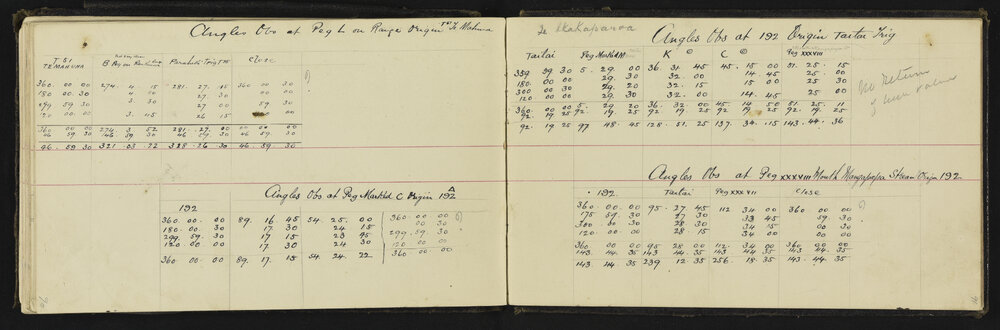 Angles Obs at Peg L on Range Origin TS I Te Mahuna
TSI TE MAHUNA B Peg on Parahaki Trig Close
360 00 00 274 4 15 281 27 15 360 00 30
180 00 30 4 00 27 30
299 59 30 3 30 27 00 59 30
120 00 00 3 45 26 15 00 00
360 00 00 274 3 52 281 27 00 00 00 00
46 59 30 46 59 30 46 59 30 46 59 30
46 59 30 321 03 22 328 26 30 46 59 30
Angles Obs at Peg Marked C Origin 192
192
360 00 00 89 16 45 54 25 00 360 00 00
180 00 30 17 30 24 15 00 30
299 59 30 17 15 23 45 299 59 30
120 00 00 17 30 24 30 120 00 00
360 00 00 89 17 15 54 24 22 360 00 00
Angles Obs at 192 Origin Taitai Trig
Taitai Peg Marked M K C Peg XXXVIII
359 59 30 5 29 00 36 31 45 45 15 00 51 25 15
180 00 00 29 30 32 00 14 45 25 00
300 00 30 29 20 32 15 15 00 25 30
120 00 00 29 30 32 00 14 45 25 00
No return
360 00 00 5 29 20 36 32 00 45 14 50 51 25
92 19 25 92 19 25 92 19 25 92 19 25 92 19 25
92 19 25 97 48 45 128 51 25 137 34 15 143 44 36
Angles Obs at Peg XXXVIII Mouth Mangapapa Stream Origin 192
192 Taitai Peg XXXVII Close
360 00 00 95 27 45 112 34 00 360 00 00
175 59 30 27 30 33 45 59 30
300 00 30 28 30 34 15 00 30
120 00 00 28 15 34 00 00 00
360 00 00 95 28 00 112 34 00 360 00 00
143 44 35 143 44 35 143 44 35 143 44 35
143 44 35 239 12 35 256 18 35 143 44 35